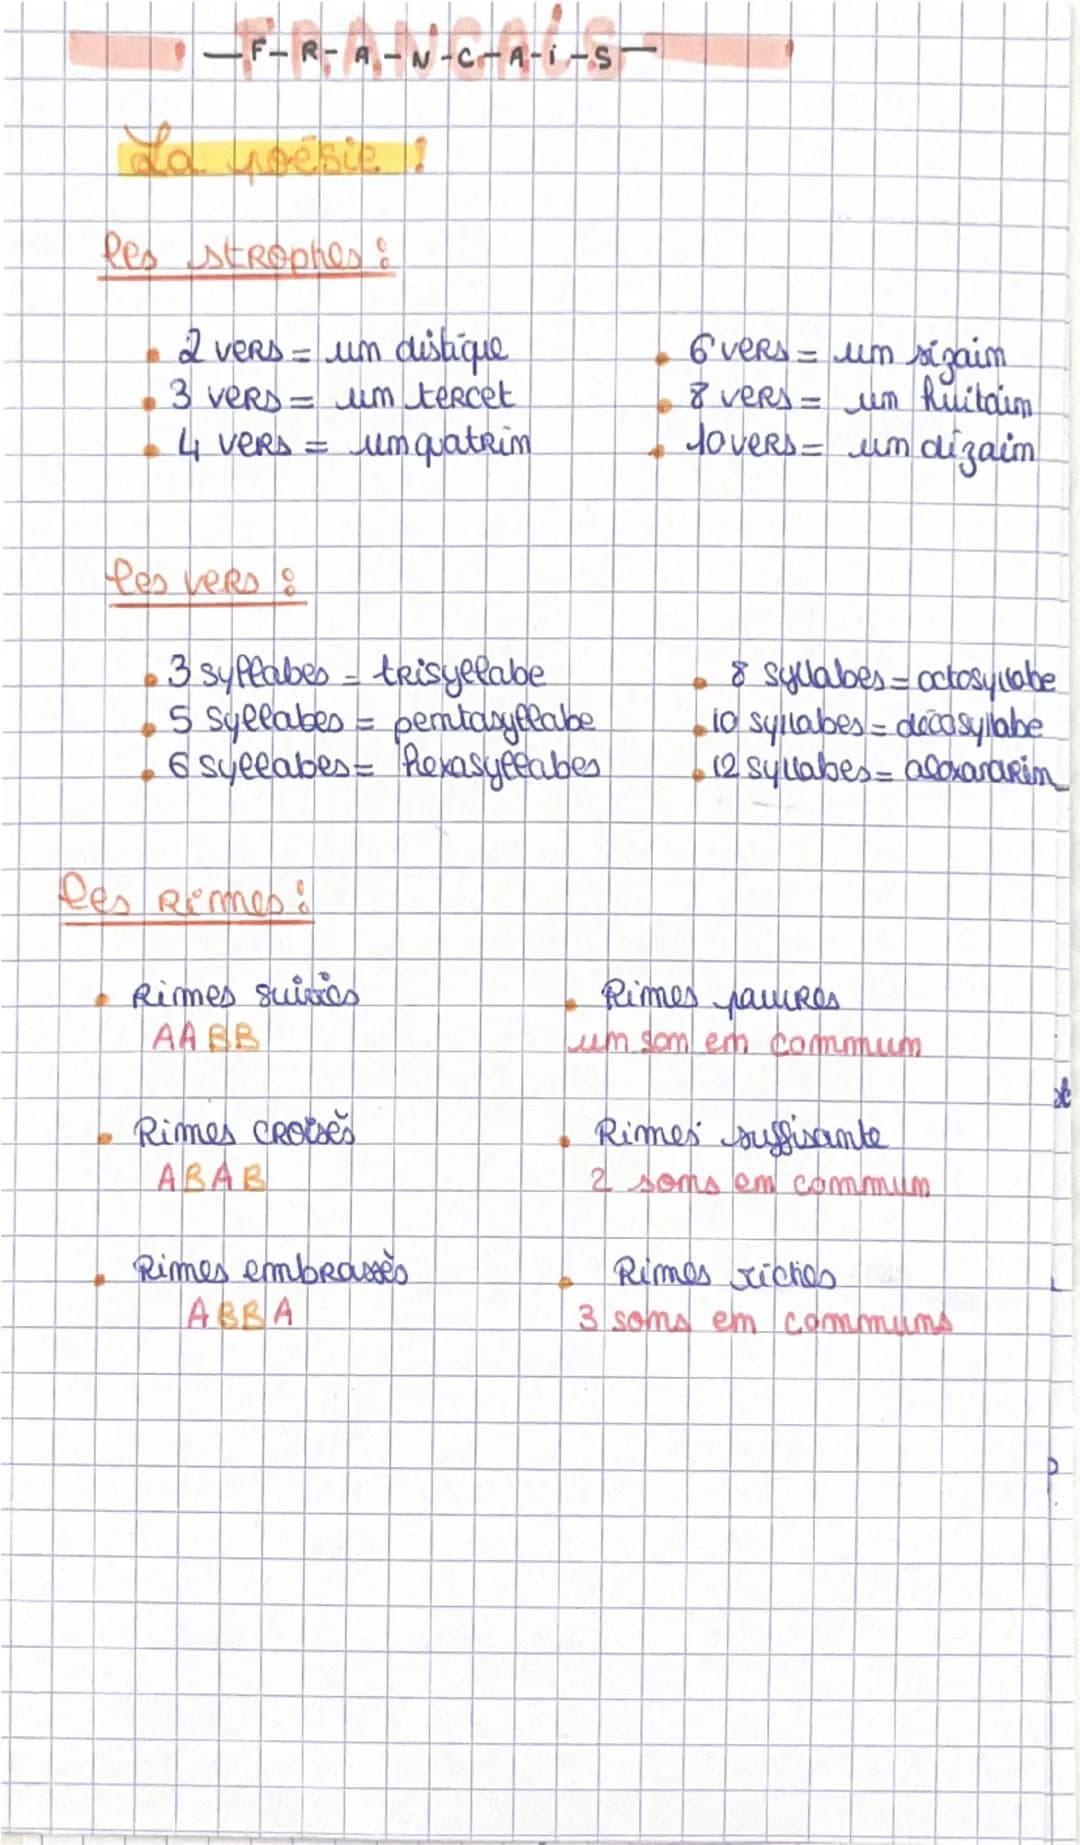 F-R-A-N-C-A-i-S
La poésie :
les strophes :
• 2 vers = un distique
• 3 vers = un tercet
• 4 vers = un quatrin
• 6 vers = un sizain
• 8 vers = un huitain
• 10 vers = un dizain
les vers :
• 3 syllabes = trisyllabe
• 5 syllabes = pentasyllabe
• 6 syllabes = hexasyllabes
• 8 syllabes = octosyllabe
• 10 syllabes = décasyllabe
• 12 syllabes =
les Rimes :
• Rimes suivies
AABB
• Rimes croisés
ABAB
• Rimes embrassés
ABBA
• Rimes pauvres
un son en commun
• Rimes suffisante
2 sons en commun
• Rimes riches
3 sons en communs